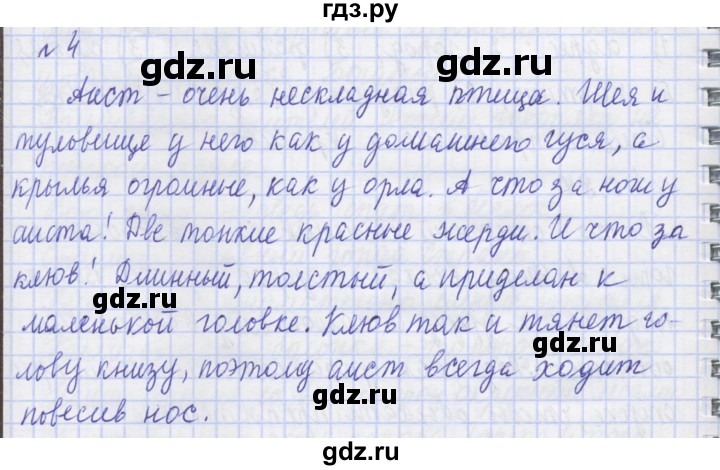 гдз.ру
№ 4
gdz.ru gdz.ru
Аист – очень нескладная птица. Шея и
туловище у него как у домашнего гуся, а
gdz.ru gdz.ru
крылья огромные, как у орла. А что за ноги у
аиста! Две тонкие красные жерди. И что за
клюв! Длинный, толстый, а приделан к
gdz.ru gdz.ru
маленькой головке. Клюв так и тянет го-
лову книзу, поэтому аист всегда ходит
gdz.ru gdz.ru
повесив нос.
gdz.ru